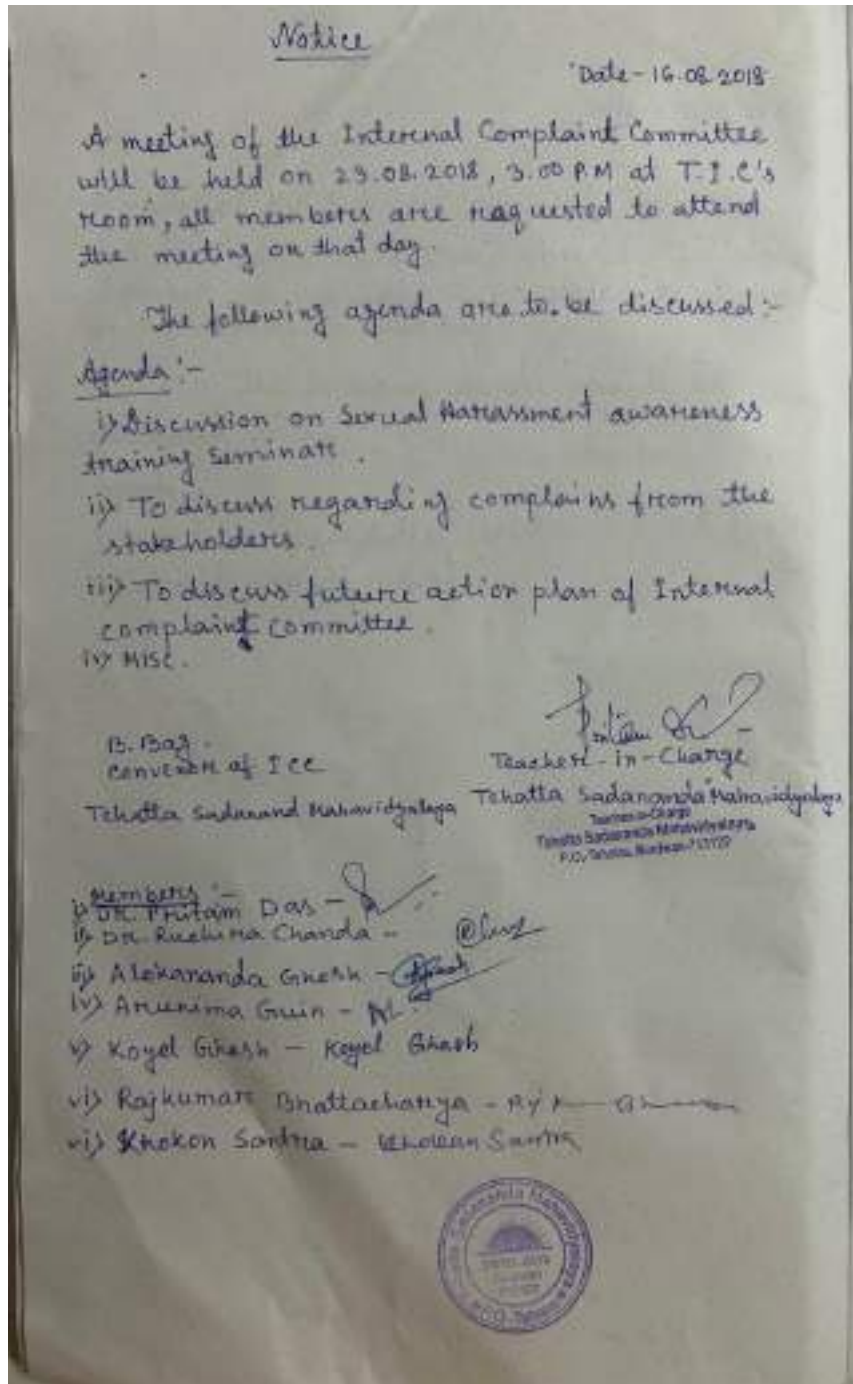 Notice
Date - 16.08.2018
A meeting of the Internal Complaint Committee
will be held on 23.08.2018, 3.00 P.M at T.I.C's
room, all members are requested to attend
the meeting on that day.
The following agenda are to be discussed :-
Agenda :-
i) Discussion on Sexual Harassment awareness
training Seminar.
ii) To discuss regarding complains from the
stakeholders.
iii) To discuss future action plan of Internal
complaint committee.
iv) MISC.
B. Bag.
Convenor of ICC
Tehatta Sadanand Mahavidyalaya
Teacher-in-Charge
Tehatta Sadananda Mahavidyalaya
Teacher-in-Charge
Tehatta Sadananda Mahavidyalaya
Members :-
i) Dr. Pritam Das -
ii) Dr. Ruchira Chanda -
iii) Alokananda Ghosh -
iv) Arunima Guin -
v) Koyel Ghosh - Koyel Ghosh
vi) Rajkumar Bhattacharya -
vi) Khokon Santra - Khokan Santra
Sadananda Mahavidyalaya